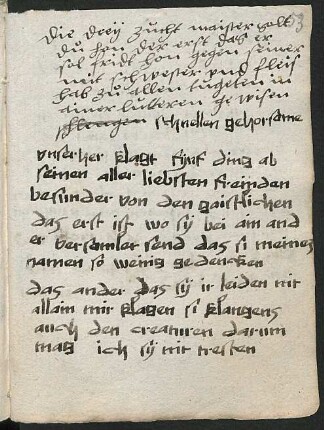 Die dreÿ zucht maister solt
du hon der erst das er
sol frid hon gegen seiner
mit schwester vnd fleis
hab zu allen tugeten in
ainer luteren gewisen
schnellen gehorsame
vnser her klagt fünf ding ab
seinen aller liebsten freinden
besunder von den gaistlichen
das erst ist wo sÿ bei ain and
er versamlet send das si meinez
namen so wenig gedencken
das ander das sÿ ir leiden nit
allain mir klagen si klangens
auch den creaturen darum
mag ich sÿ nit tresten